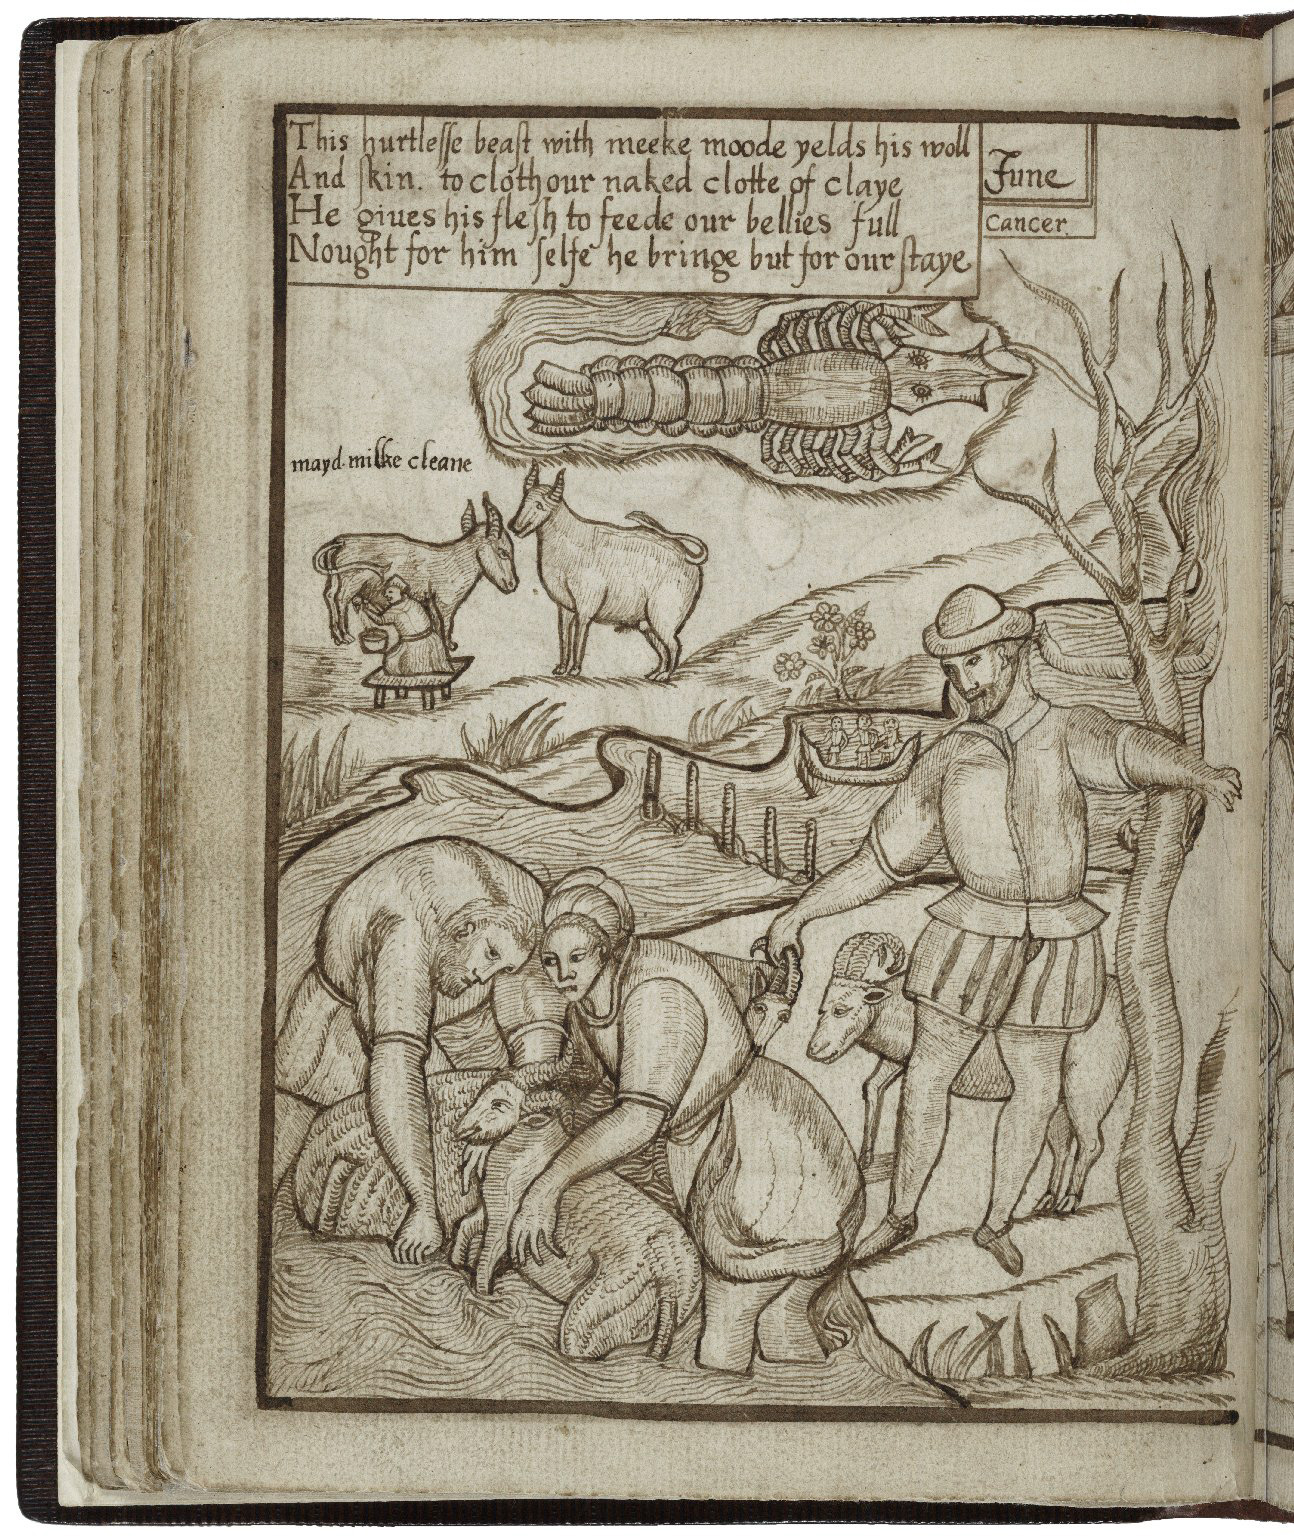 This hurtlesse beast with meeke moode yelds his woll
And skin. to cloth our naked clotte of claye
He giues his flesh to feede our bellies full
Nought for him selfe he bringe but for our staye
June
Cancer.
mayd milke cleane